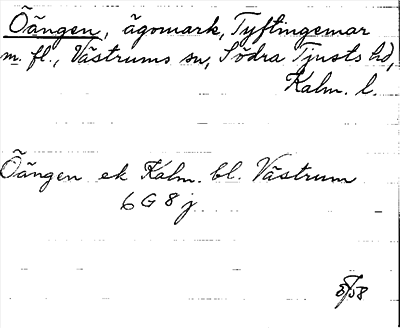 Öängen, ägomark, Tyftingemar
m. fl., Västrums sn, Södra Tjusts hd,
Kalm. l.
Öängen ek Kalm. bl. Västrum
6 G 8 j